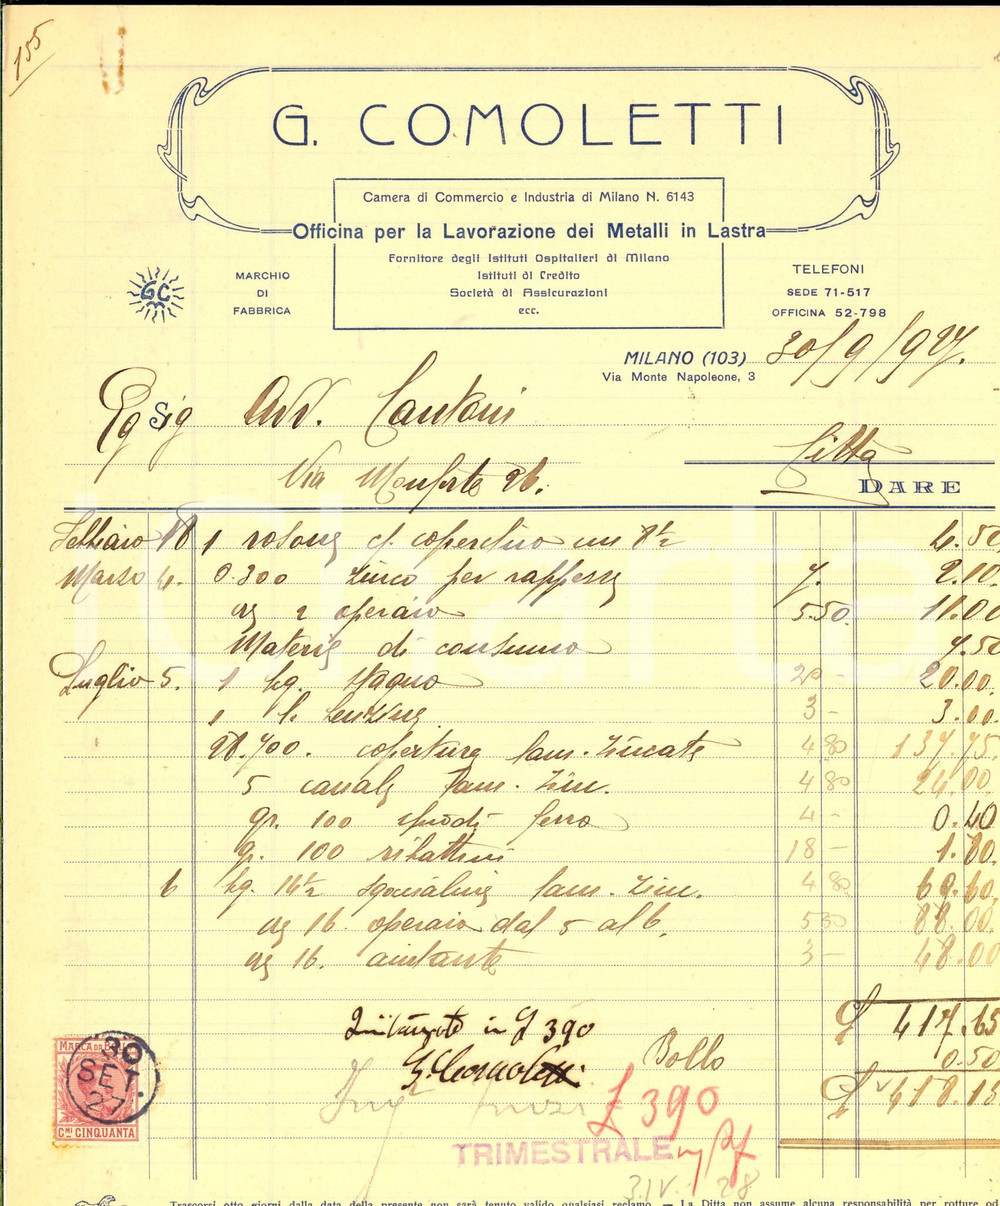 155
G. COMOLETTI
Camera di Commercio e Industria di Milano N. 6143
Officina per la Lavorazione dei Metalli in Lastra
Fornitore degli Istituti Ospitalieri di Milano
Istituti di Credito
Società di Assicurazioni
ecc.
GC
MARCHIO
DI
FABBRICA
TELEFONI
SEDE 71-517
OFFICINA 52-798
MILANO (103) 30/9/927.
Via Monte Napoleone, 3
Eg Sig Avv. Cantoni
Città
Via Monforte 26.
DARE
Febbraio 18 1 rosone p. coperchio cm 8½ 4.50
Marzo 4. 0.300 zinco per rappezzi 7. 2.10
2 operaio 5.50 11.00
Materie di consumo 7.50
Luglio 5. 1 kg. stagno 20 - 20.00
1 l. benzina 3 - 3.00
28.700. copertura lam. zincata 4.80 137.75
5 canali lam. zin. 4 80 24.00
gr. 100 chiodi ferro 4 - 0.40
g. 100 ribattini 18 - 1.80
6 kg. 14½ lam. zinc. 4 80 69.60
16. operaio dal 5 al 6. 5 50 88.00
16. aiutante 3 - 48.00
£ 417.65
Quitanzato in £ 390
Bollo 0.50
G. Comoletti
£ 418.15
£ 390
TRIMESTRALE
3 IV 28
MARCA DA BOLLO
30
SET.
27
Cmi CINQUANTA
Trascorsi otto giorni dalla data della presente non sarà tenuto valido qualsiasi reclamo. — La Ditta non assume alcuna responsabilità per rotture od